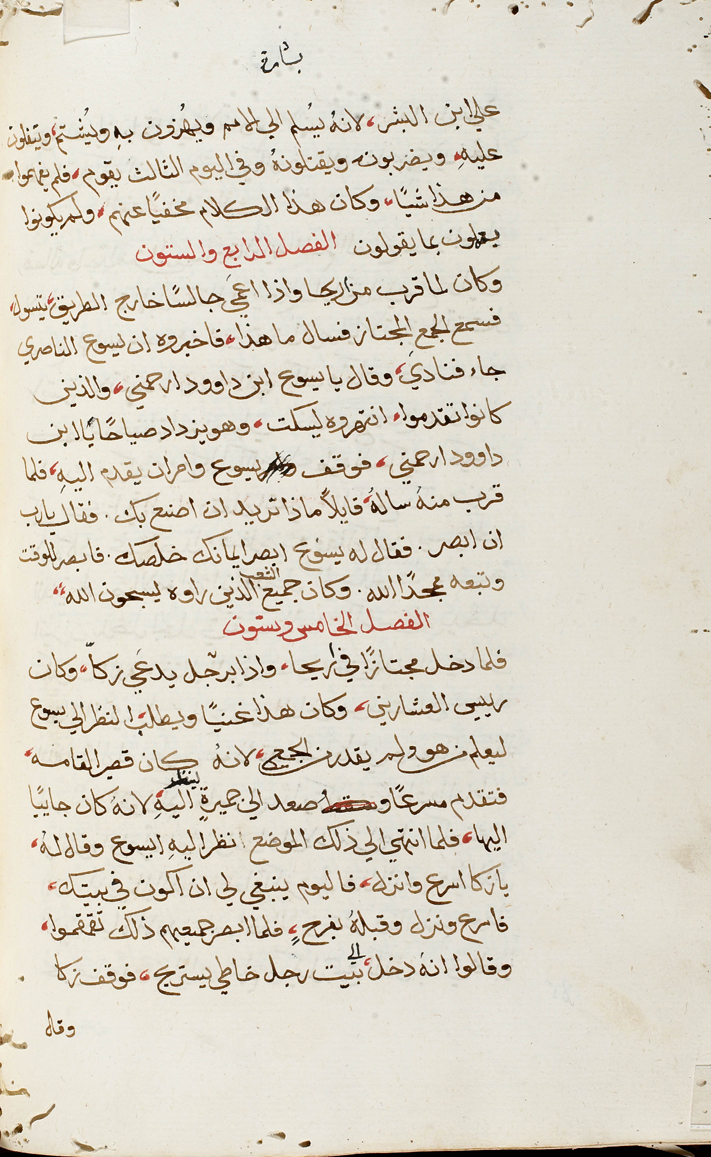 بشارة
على ابن البشر، لانه يُسلم الى الامم ويهزون به ويُشتم، ويتفلون
عليه، ويضربونه ويقتلونهُ وفي اليوم الثالث يقوم، فلم يفهموا
من هذا شيًا، وكان هذا الكلام مخفيًا عنهم، ولم يكونوا
يعلمون بما يقولون الفصل الرابع والستون
وكان لما قرب من اريحا واذا اعمى جالسًا خارج الطريق، يتسول،
فسمع الجمع المجتاز فسال ما هذا، فاخبروه ان يسوع الناصري
جاء فنادى، وقال يا يسوع ابن داوود ارحمني، والذين
كانوا تقدموا، انتهروه ليسكت، وهو يزداد صياحًا يا ابن
داوود ارحمني، فوقف يسوع وامر ان يقدم اليه، فلما
قرب منهُ سالهُ، قايلًا ماذا تريد ان اصنع بك . فقال يا رب
ان ابصر . فقال له يسوع ابصر ايمانك خلصك . فابصر للوقت
وتبعه ممجدًا الله . وكان جميع الشعب الذين راوه يسبحون الله،
الفصل الخامس وستون
فلما دخل مجتازًا في اريحا، واذا برجل يدعى زكا، وكان
رييس العشارين، وكان هذا غنيًا ويطلب النظر الى يسوع
ليعلم من هو ولم يقدر من الجميع، لانهُ كان قصير القامه،
فتقدم مسرعًا و صعد الى جميزةٍ لينظر اليهِ لانهُ كان جاييًا
اليها، فلما انتهى الى ذلك الموضع نظر اليهِ ايسوع وقال لهُ،
يا زكا اسرع وانزل، فاليوم ينبغي لي ان اكون في بيتك،
فاسرع ونزل وقبلهُ بفرحٍ، فلما ابصر جميعهم ذلك تقمقموا،
وقالوا انهُ دخل، الى بيت رجل خاطي يستريح، فوقف زكا
وقال